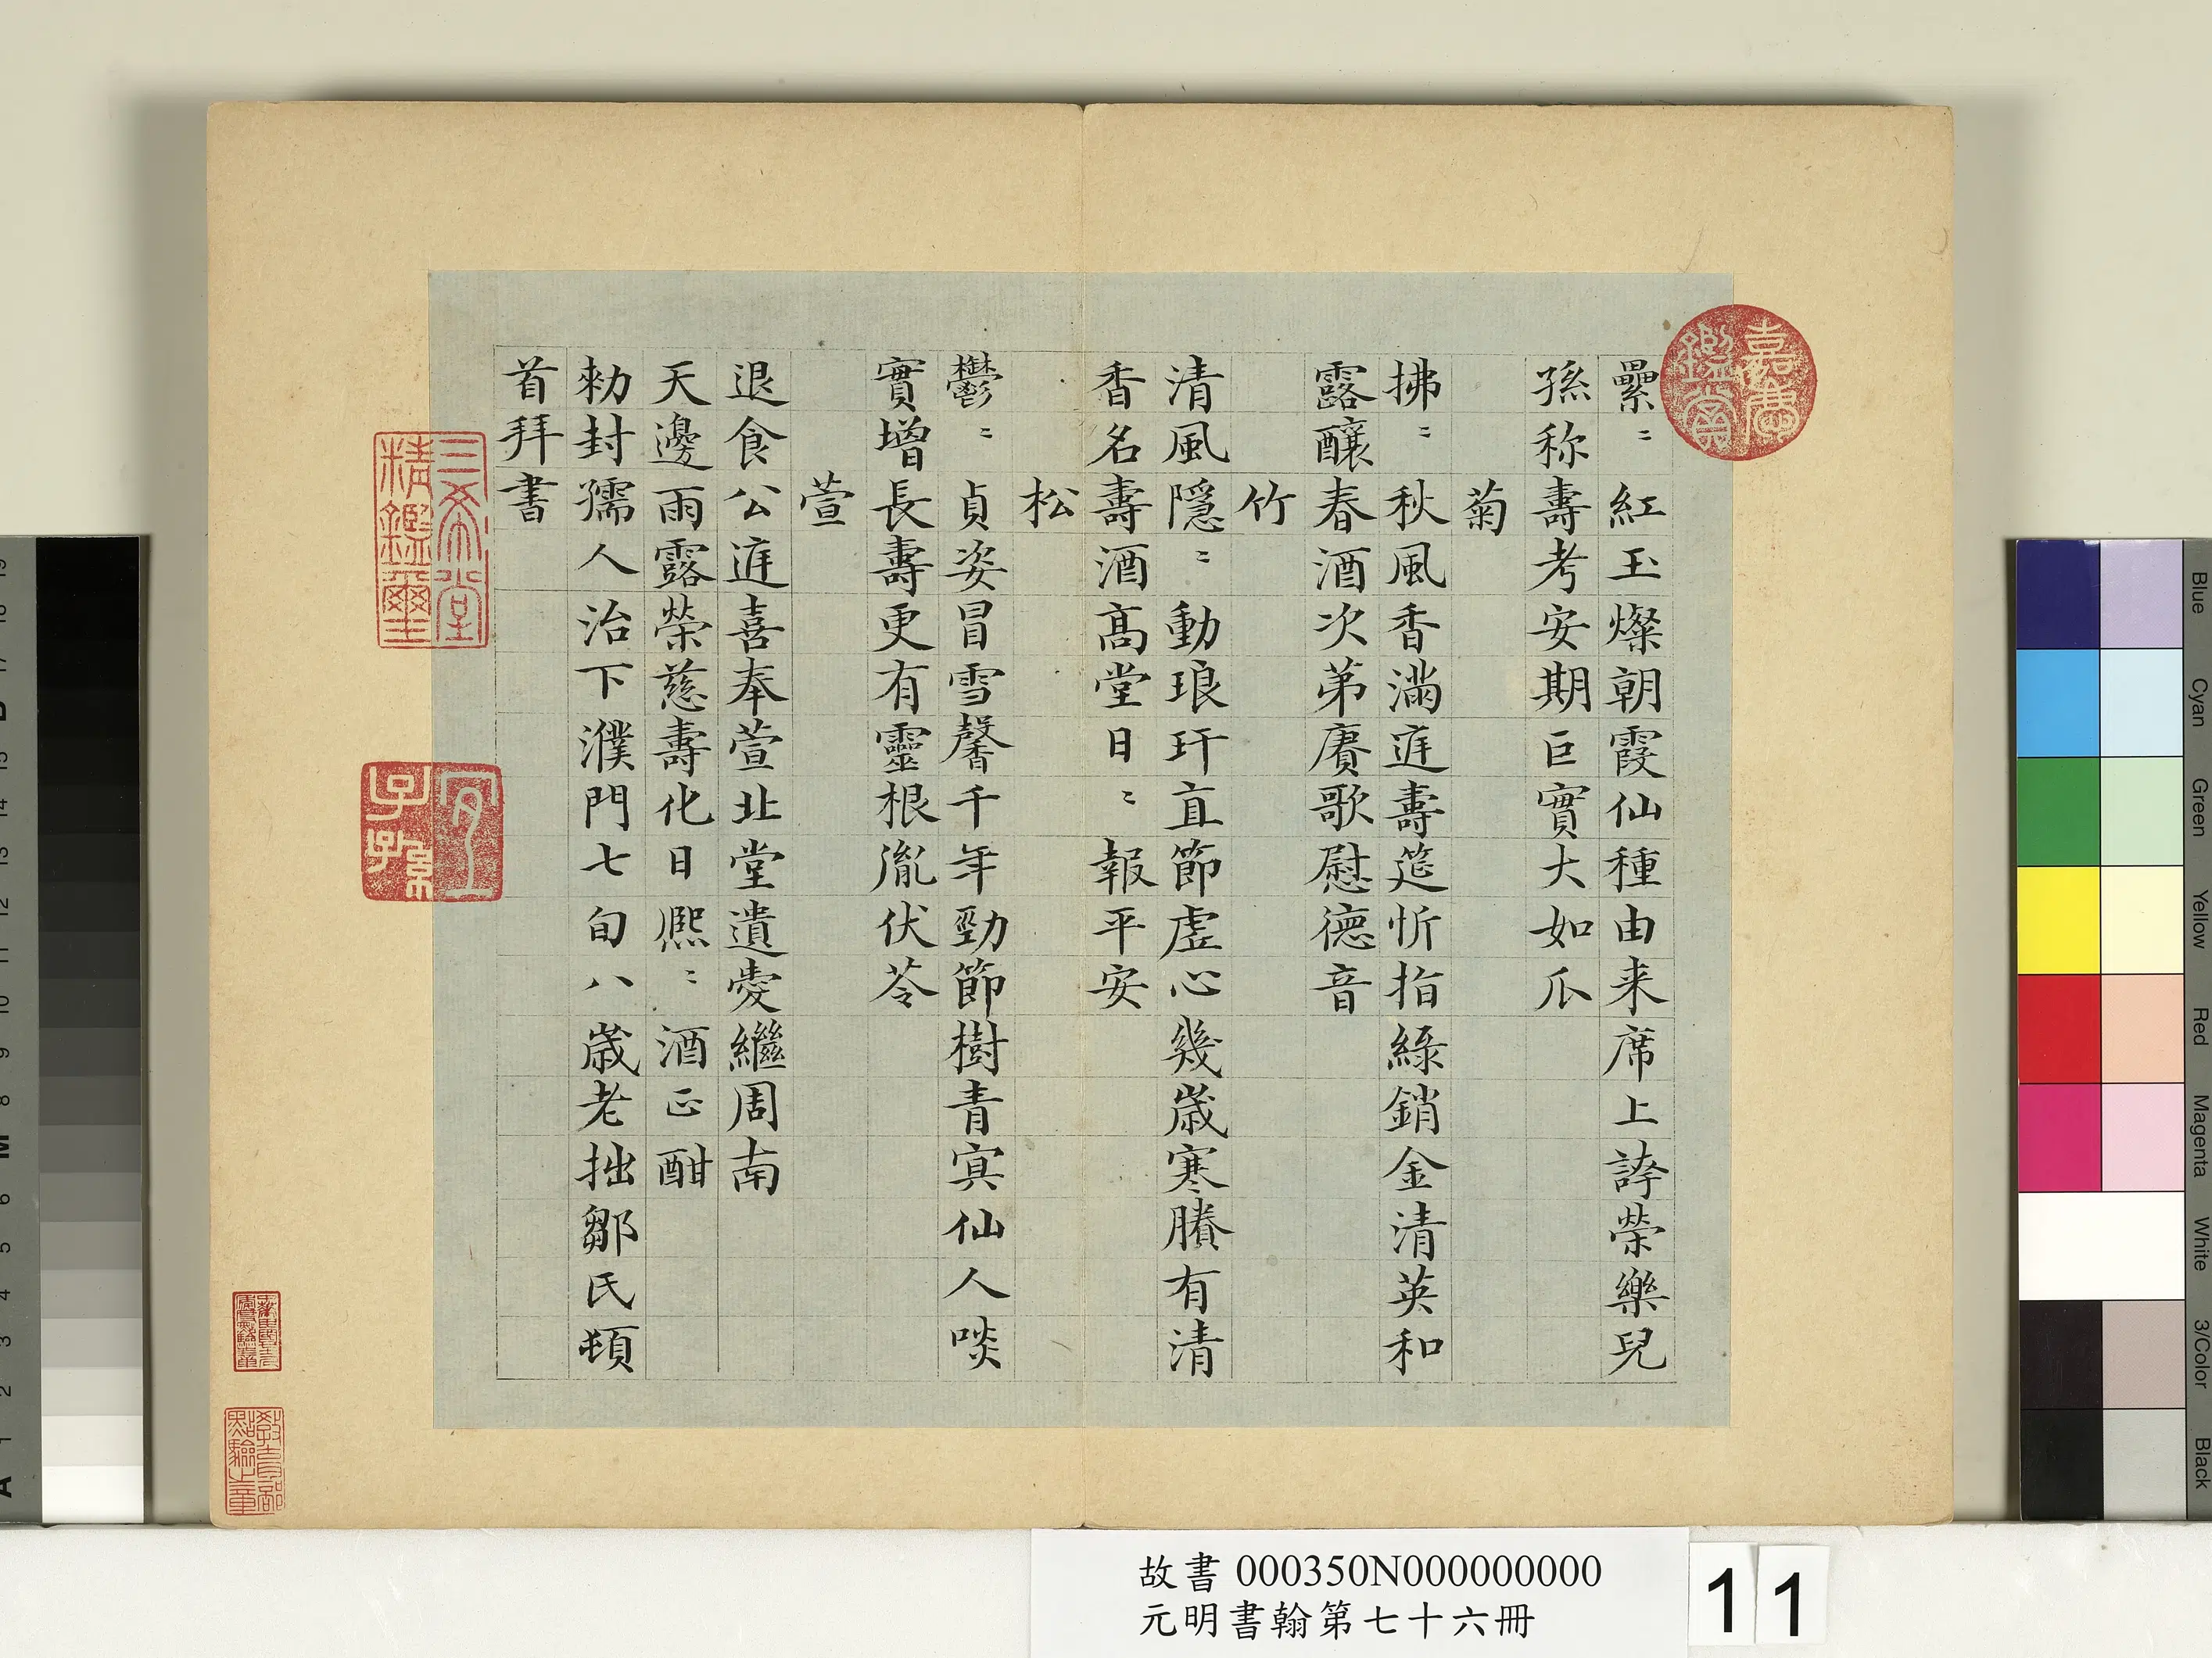 纍〻紅玉燦朝霞仙種由来席上誇榮樂兒
孫称壽考安期巨實大如瓜
菊
拂〻秋風香滿庭壽筵忻指綠銷金清英和
露釀春酒次第賡歌慰德音
竹
清風隱〻動琅玕直節虛心幾歲寒賸有清
香名壽酒高堂日〻報平安
松
鬱〻貞姿冒雪馨千年勁節樹青冥仙人啖
實增長壽更有靈根胤伏苓
萱
退食公庭喜奉萱北堂遺愛繼周南
天邊雨露榮慈壽化日熈〻酒正酣
勑封孺人治下濮門七旬八歲老拙鄒氏頓
首拜書
嘉慶鑑賞
三希堂精鑑璽
宜子孫
故書 000350N000000000
元明書翰第七十六冊
11
Blue
Cyan
Green
Yellow
Red
Magenta
White
3/Color
Black
A 1 2 3 4 5 6 M 8 9 10 11 12 13 14 15 B 17 18 19